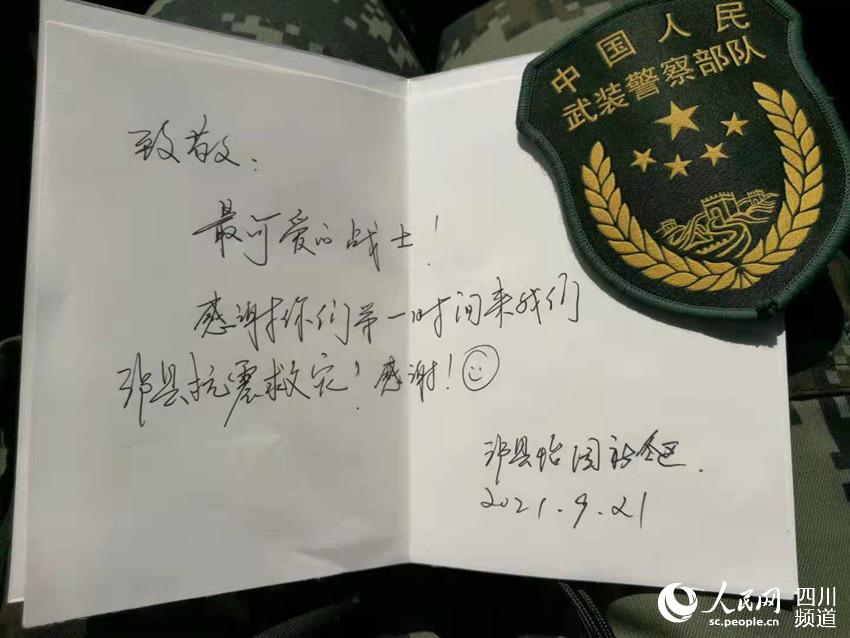 中国人民
武装警察部队
致敬：
最可爱的战士！
感谢你们第一时间来我们
泸县抗震救灾！感谢！
泸县怡园社区.
2021.9.21
人民网
sc.people.cn
四川
频道